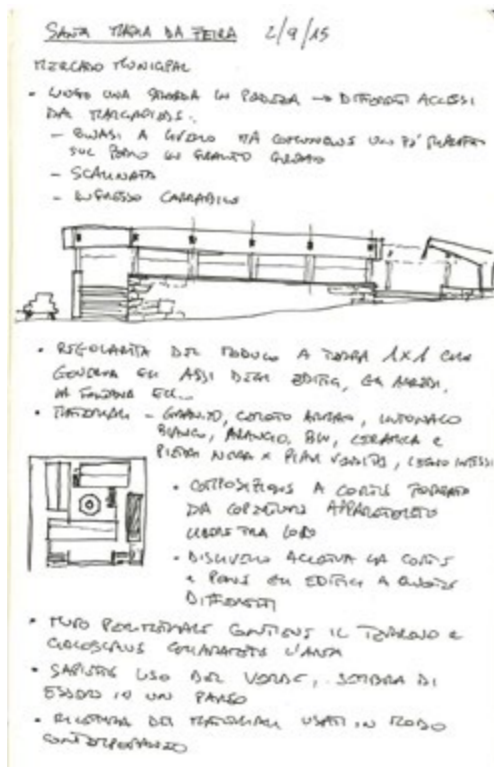 SANTA MARIA DA FEIRA 2/9/15
MERCADO MUNICIPAL
• LUNGO UNA STRADA IN → DIFFERENTI ACCESSI
DA
- QUASI A LIVELLO MA COMUNQUE UN PO'
SUL IN GRANITO GRIGIO
- SCALINATA
- INGRESSO CARRABILE
• REGOLARITÀ DEL MODULO A TERRA 1X1 CHE
GOVERNA GLI ASSI DEGLI EDIFICI, GLI ARREDI,
LA FONTANA ECC..
• MATERIALI - GRANITO, , INTONACO
BIANCO, , BLU, CERAMICA E
PIETRA NERA X PIANI VENDITA, LEGNO
• COMPOSIZIONE A CORTE FORMATO
DA COPERTURE APPARENTEMENTE
LIBERE TRA LORO
• DISLIVELLO LA CORTE
E PONE GLI EDIFICI A QUOTE
DIFFERENTI
• MURO PERIMETRALE CONTIENE IL TERRENO E
L'AREA
• USO DEL VERDE, SEMBRA DI
ESSERE IN UN PARCO
• DEI MATERIALI USATI IN MODO
CONTEMPORANEO